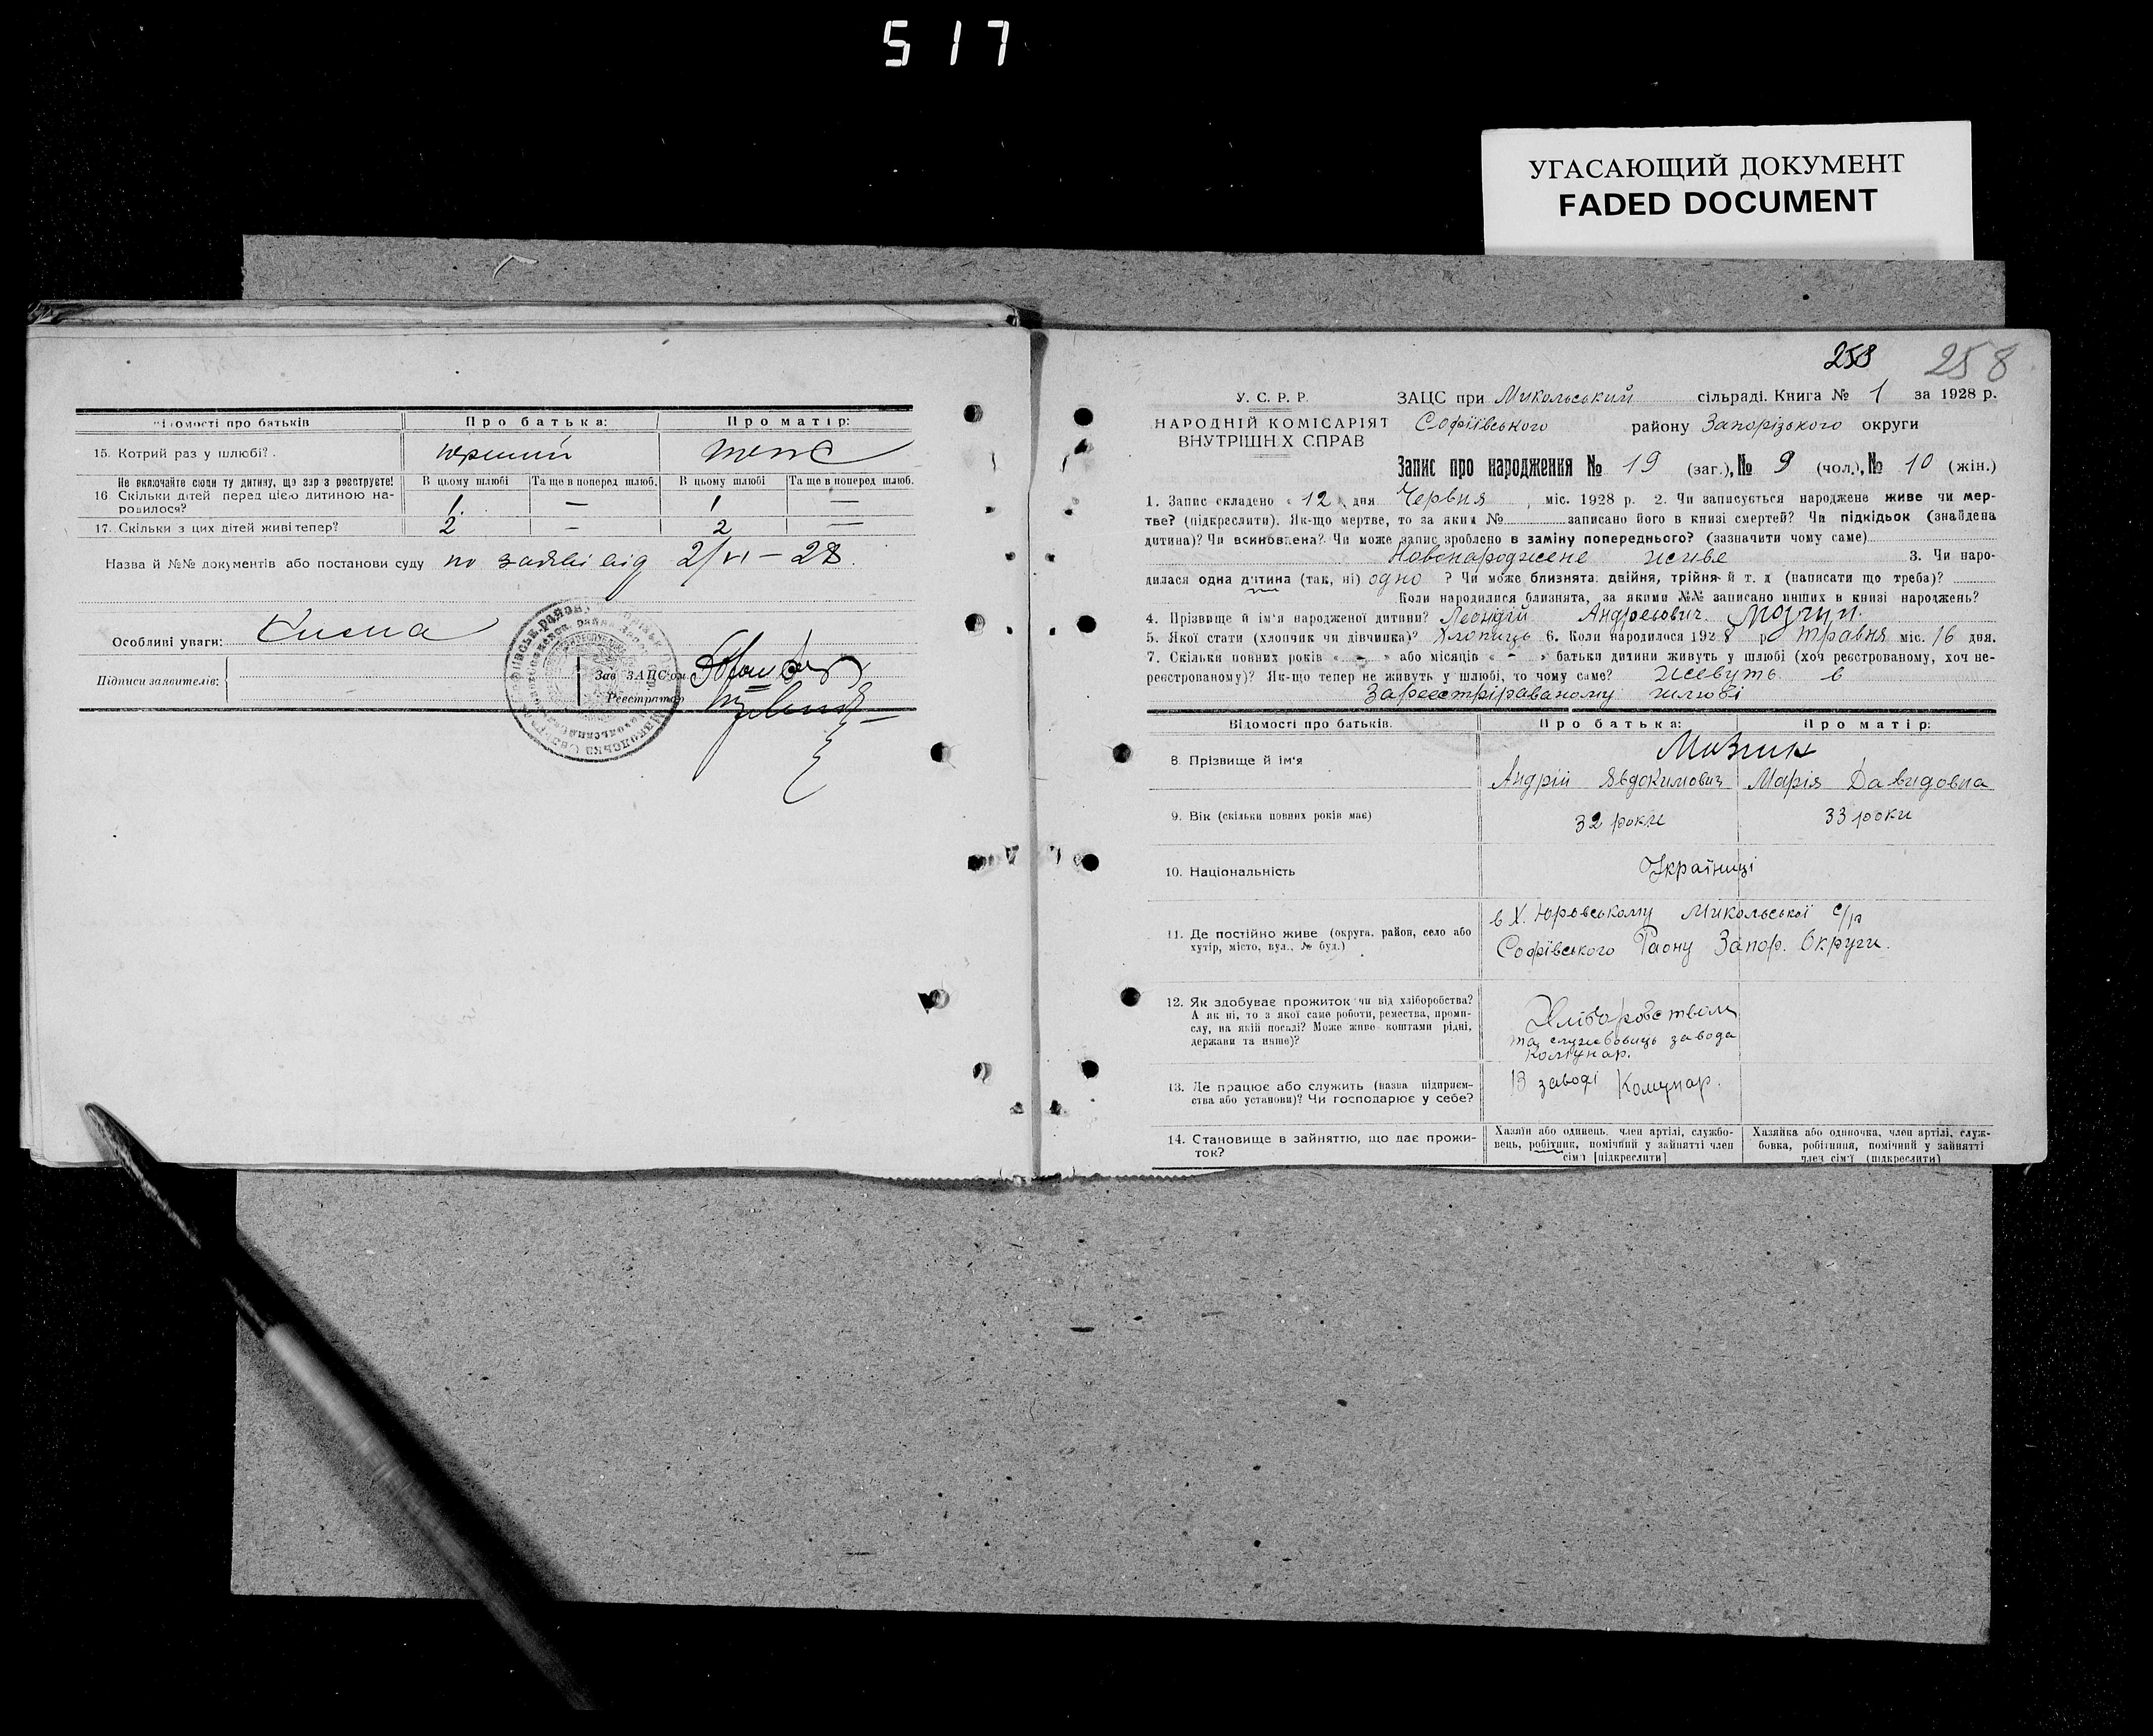 517
УГАСАЮЩИЙ ДОКУМЕНТ
FADED DOCUMENT
Відомости про батьків
Про батька:
Про матір:
15. Котрий раз у шлюбі?
перший
теж
Не включайте сюди ту дитину, що зараз реєструєте!
В цьому шлюбі
Та ще в поперед. шлюб.
В цьому шлюбі
Та ще в поперед. шлюб.
16 Скільки дітей перед цією дитиною на-
родилося?
1
—
1
—
17. Скільки з цих дітей живі тепер?
2
—
2
—
Назва й №№ документів або постанови суду по заяві від 2/VI – 28.
Особливі уваги:
Підписи заявителів:
Зав. ЗАЦС'ом
Реєстратор
258 258
У. С. Р. Р.
НАРОДНІЙ КОМІСАРІЯТ
ВНУТРІШНІХ СПРАВ
ЗАЦС при Микольський сільраді. Книга № 1 за 1928 р.
Софіївського району Запорізького округи
Запис про народження № 19 (заг.), № 9 (чол.), № 10 (жін.)
1. Запис складено «12» дня Червня, міс. 1928 р. 2. Чи записується народжене живе чи мер-
тве? (підкреслити). Як-що мертве, то за яким № записано його в книзі смертей? Чи підкідьок (знайдена
дитина)? Чи всиновлена? Чи може запис зроблено в заміну попереднього? (зазначити чому саме)
Новонароджене живе 3. Чи наро-
дилася одна дитина (так, ні) одно ? Чи може близнята: двійня, трійня й т. д (написати що треба)?
Коли народилися близнята, за якими №№ записано инших в книзі народжень?
4. Прізвище й ім'я народженої дитини? Леондій Андреєвич
5. Якої стати (хлопчик чи дівчинка)? Хлопиць 6. Коли народилося 1928 р. травня міс. 16 дня.
7. Скільки повних років « – » або місяців « – » батьки дитини живуть у шлюбі (хоч реєстрованому, хоч не-
реєстрованому)? Як-що тепер не живуть у шлюбі, то чому саме? Живуть в
Зареєстріраваному шлюбі
Відомості про батьків.
Про батька:
Про матір:
8. Прізвище й ім'я
Мазник
Андрій Явдокимович
Марія Давидовна
9. Вік (скільки повних років має)
32 роки
33 роки
10. Національність
Українці
11. Де постійно живе (округа, район, село або
хутір, місто, вул., № буд.)
в Х. Юровському Микольської с/р
Софівського Раону Запор. Округи.
12. Як здобуває прожиток чи від хліборобства?
А як ні, то з якої саме роботи, ремества, проми-
слу, на якій посаді? Може живе коштами рідні,
держави та инше)?
Хліборобством
та службовиць завода
Комунар.
13. Де працює або служить (назва підприєм-
ства або установи)? Чи господарює у себе?
В заводі Комунар.
14. Становище в зайняттю, що дає прожи-
ток?
Хазяїн або одинець, член артілі, службо-
вець, робітник, помічний у зайнятті член
сім'ї [підкреслити]
Хазяйка або одиночка, член артілі, служ-
бовка, робітниця, помічний у зайнятті
член сім'ї (підкреслити)